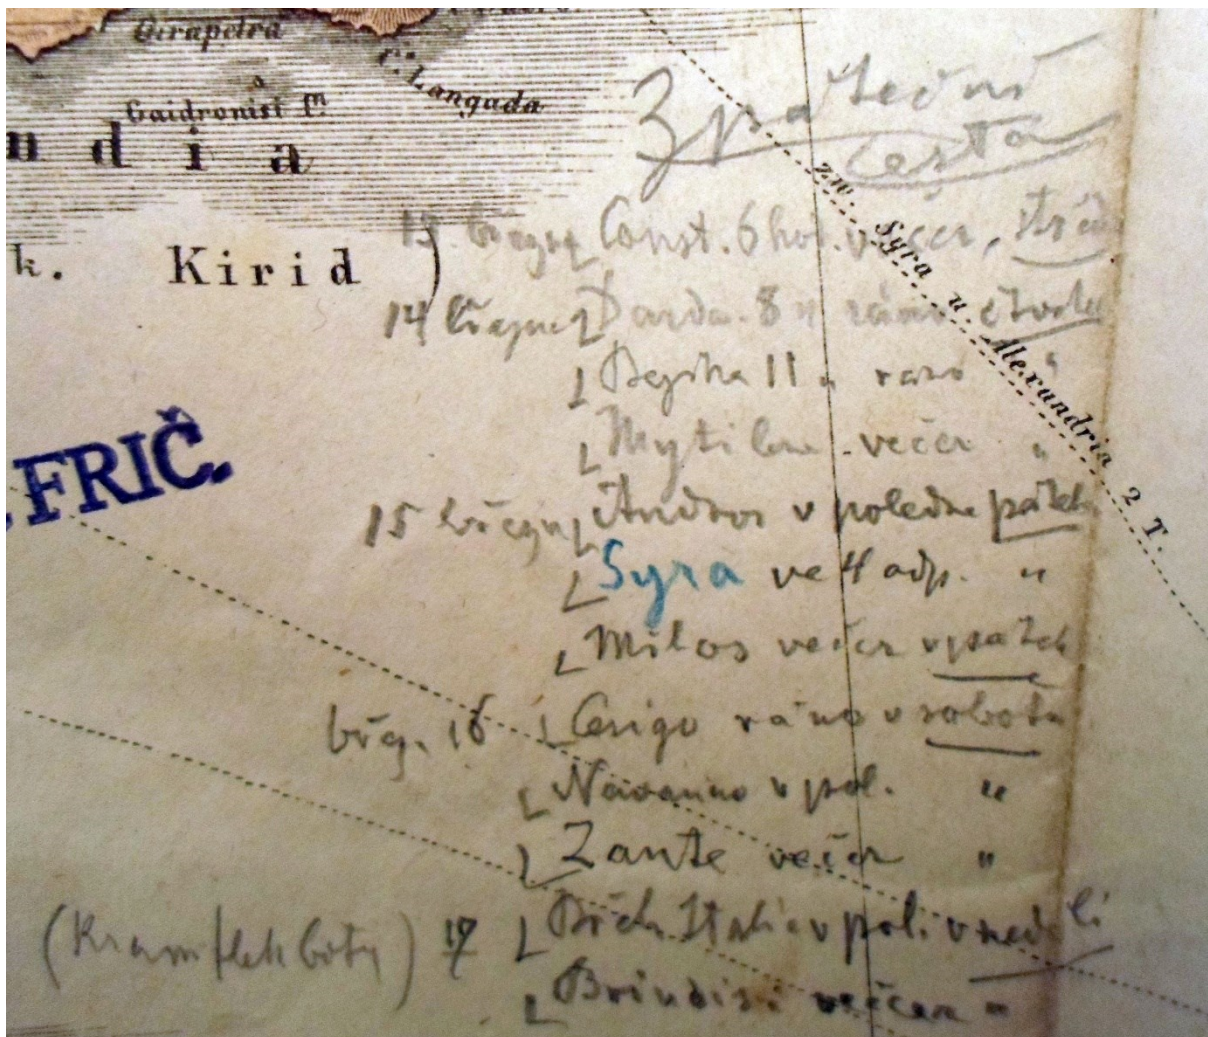 Girapetra
C. Langada
Gaidronisi I.
n d i a
k. Kirid )
FRIČ.
zw. Syra u. Alexandria 2 T.
Zpáteční
cesta
13. března Const. 6 hod. večer, středa
14 března Darda. 8 " ráno čtvrtek
11 " ráno "
Mytilene večer "
15 března Andros v poledne pátek
Syra ve 4 odp. "
Milos večer v pátek
břez. 16 Cerigo ráno v sobotu
v pol. "
Zante večer "
(Kram flek boty) 17 Břeh Italie v pol. v neděli
Brindisi večer "